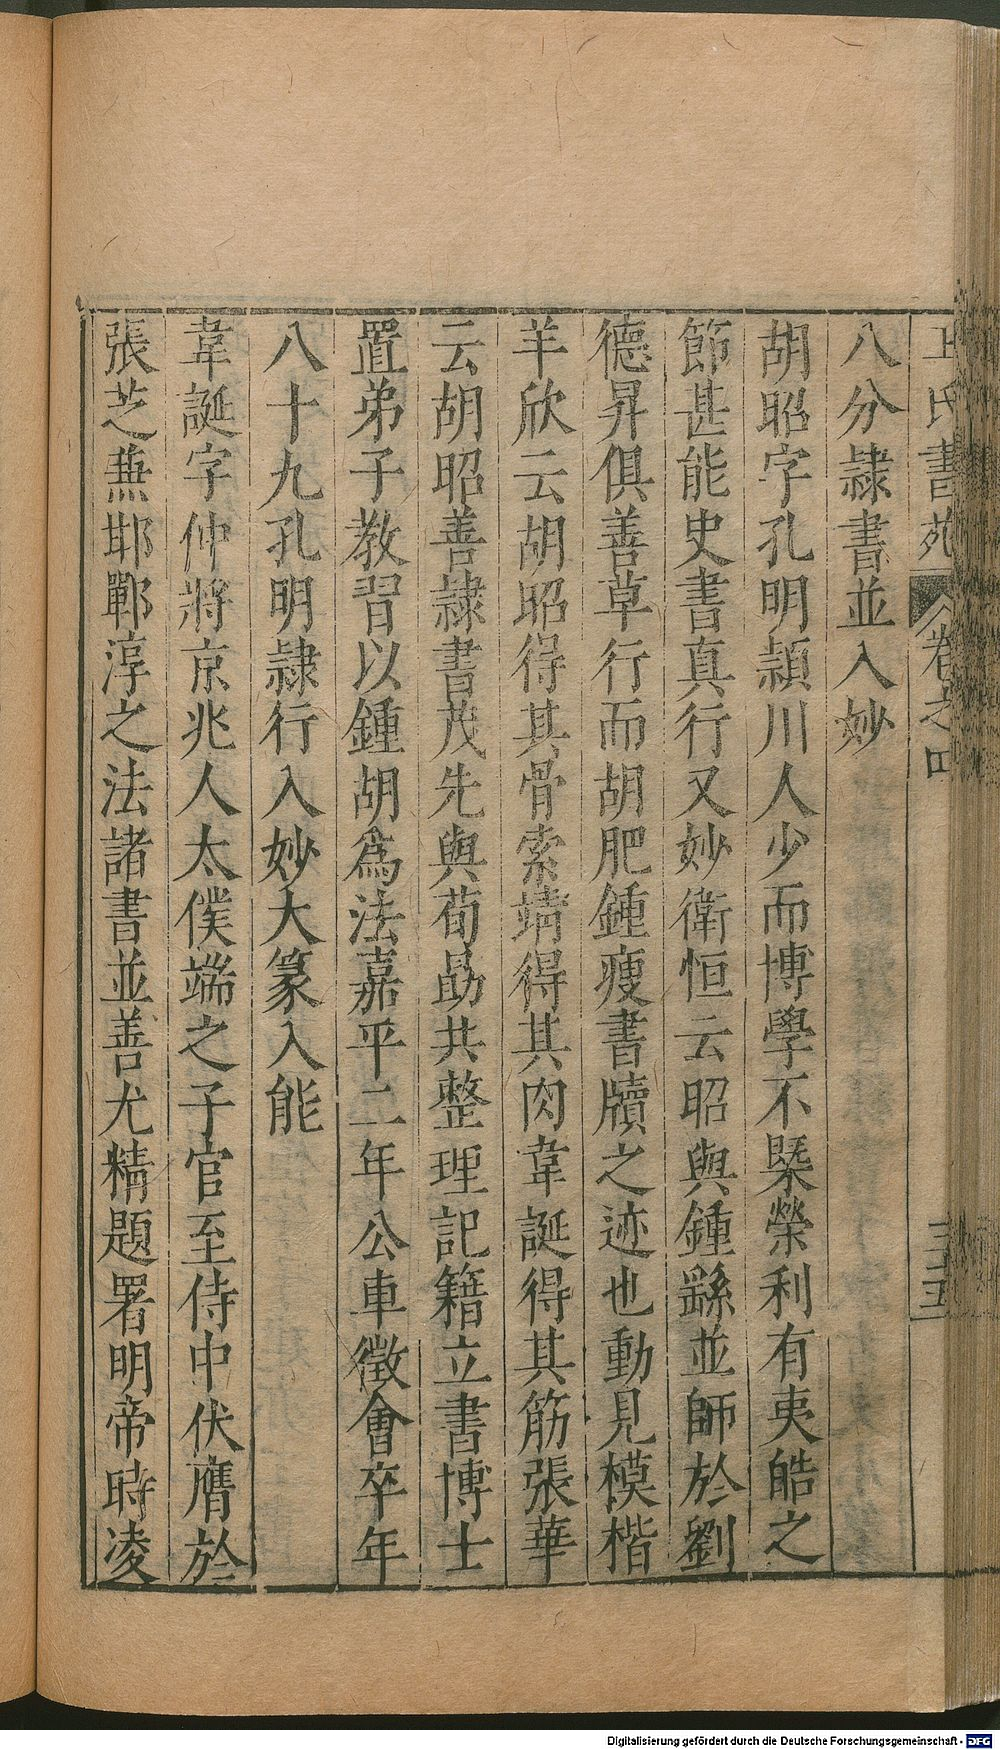 王氏書苑 卷之四 三十五
八分隷書並入妙
胡昭字孔明潁川人少而博學不槩榮利有夷皓之
節甚能史書真行又妙衛恒云昭與鍾繇並師於劉
德昇俱善草行而胡肥鍾瘦書牘之迹也動見模楷
羊欣云胡昭得其骨索靖得其肉韋誕得其筋張華
云胡昭善隷書茂先與荀勗共整理記籍立書博士
置弟子教習以鍾胡為法嘉平二年公車徵會卒年
八十九孔明隷行入妙大篆入能
韋誕字仲將京兆人太僕端之子官至侍中伏膺於
張芝𠔥邯鄲淳之法諸書並善尤精題署明帝時凌
Digitalisierung gefördert durch die Deutsche Forschungsgemeinschaft - DFG